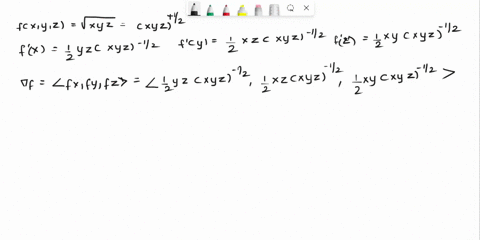 f(x,y,z) = √xyz = (xyz)^{1/2}
f'(x) = 1/2 yz (xyz)^{-1/2} f'(y) = 1/2 xz (xyz)^{-1/2} f'(z) = 1/2 xy (xyz)^{-1/2}
∇f = <fx, fy, fz> = <1/2 yz (xyz)^{-1/2}, 1/2 xz (xyz)^{-1/2}, 1/2 xy (xyz)^{-1/2}>